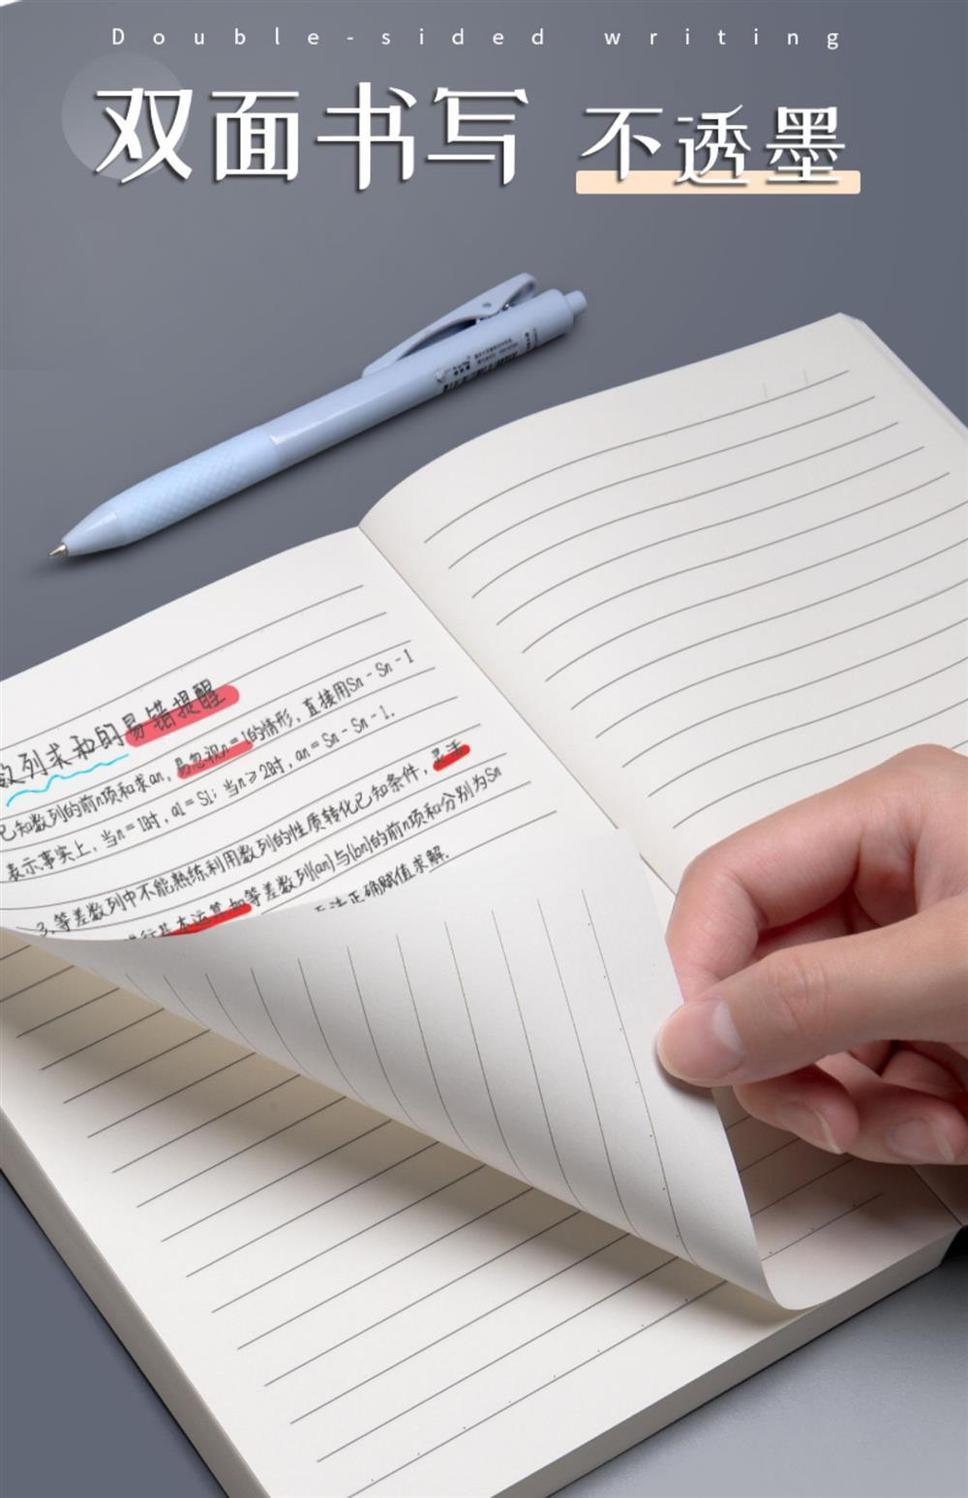 Double-sided writing
双面书写 不透墨
数列求和的易错提醒
已知数列的前n项和求an, 易忽视n=1的情形, 直接用Sn-Sn-1
表示事实上, 当n=1时, a1=S1; 当n≥2时, an=Sn-Sn-1.
3.等差数列中不能熟练利用数列的性质转化已知条件, 灵活
行基本运算如等差数列{an}与{bn}的前n项和分别为Sn
正确赋值求解.